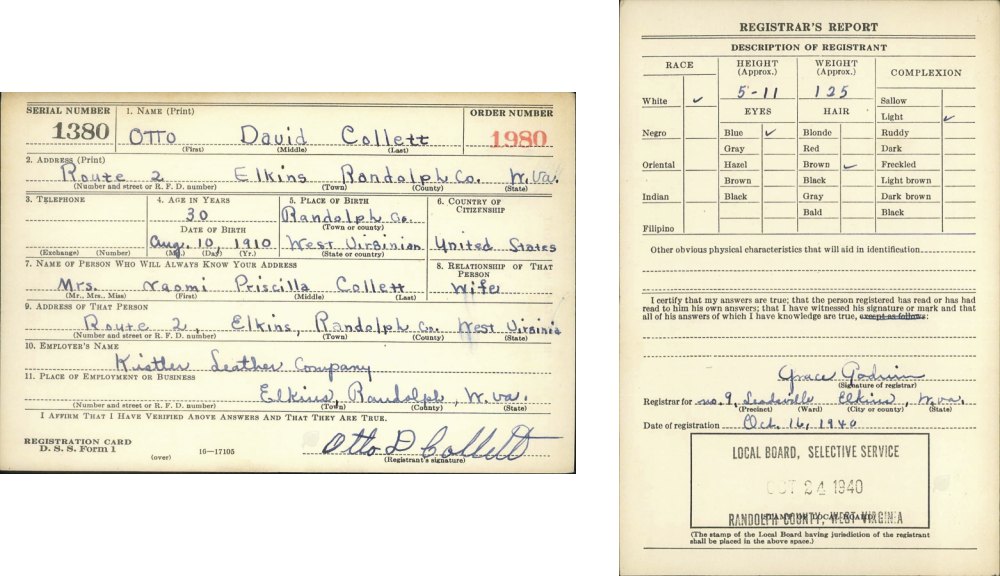 SERIAL NUMBER 1. NAME (Print) ORDER NUMBER
1380 OTTO David Collett 1980
(First) (Middle) (Last)
2. ADDRESS (Print)
Route 2 Elkins Randolph Co. W. Va.
(Number and street or R. F. D. number) (Town) (County) (State)
3. TELEPHONE 4. AGE IN YEARS 5. PLACE OF BIRTH 6. COUNTRY OF CITIZENSHIP
30 Randolph Co.
DATE OF BIRTH (Town or county)
Aug. 10, 1910 West Virginian United States
(Exchange) (Number) (Mo.) (Day) (Yr.) (State or country)
7. NAME OF PERSON WHO WILL ALWAYS KNOW YOUR ADDRESS 8. RELATIONSHIP OF THAT PERSON
Mrs. Naomi Priscilla Collett Wife
(Mr., Mrs., Miss) (First) (Middle) (Last)
9. ADDRESS OF THAT PERSON
Route 2, Elkins, Randolph Co. West Virginia
(Number and street or R. F. D. number) (Town) (County) (State)
10. EMPLOYER'S NAME
Kistler Leather Company
11. PLACE OF EMPLOYMENT OR BUSINESS
Elkins, Randolph, W. Va.
(Number and street or R. F. D. number) (Town) (County) (State)
I AFFIRM THAT I HAVE VERIFIED ABOVE ANSWERS AND THAT THEY ARE TRUE.
REGISTRATION CARD
D. S. S. Form 1 16—17105 Otto D Collett
(over) (Registrant's signature)
REGISTRAR'S REPORT
DESCRIPTION OF REGISTRANT
RACE HEIGHT (Approx.) WEIGHT (Approx.) COMPLEXION
5-11 125
White ✓ EYES HAIR Sallow
Light ✓
Negro Blue ✓ Blonde Ruddy
Gray Red Dark
Oriental Hazel Brown ✓ Freckled
Brown Black Light brown
Indian Black Gray Dark brown
Bald Black
Filipino
Other obvious physical characteristics that will aid in identification
I certify that my answers are true; that the person registered has read or has had
read to him his own answers; that I have witnessed his signature or mark and that
all of his answers of which I have knowledge are true, except as follows:
Grace Godwin
(Signature of registrar)
Registrar for no. 9, Leadsville Elkins, W. Va.
(Precinct) (Ward) (City or county) (State)
Date of registration Oct. 16, 1940
LOCAL BOARD, SELECTIVE SERVICE
OCT 24 1940
(STAMP OF LOCAL BOARD)
RANDOLPH COUNTY, WEST VIRGINIA
(The stamp of the Local Board having jurisdiction of the registrant
shall be placed in the above space.)